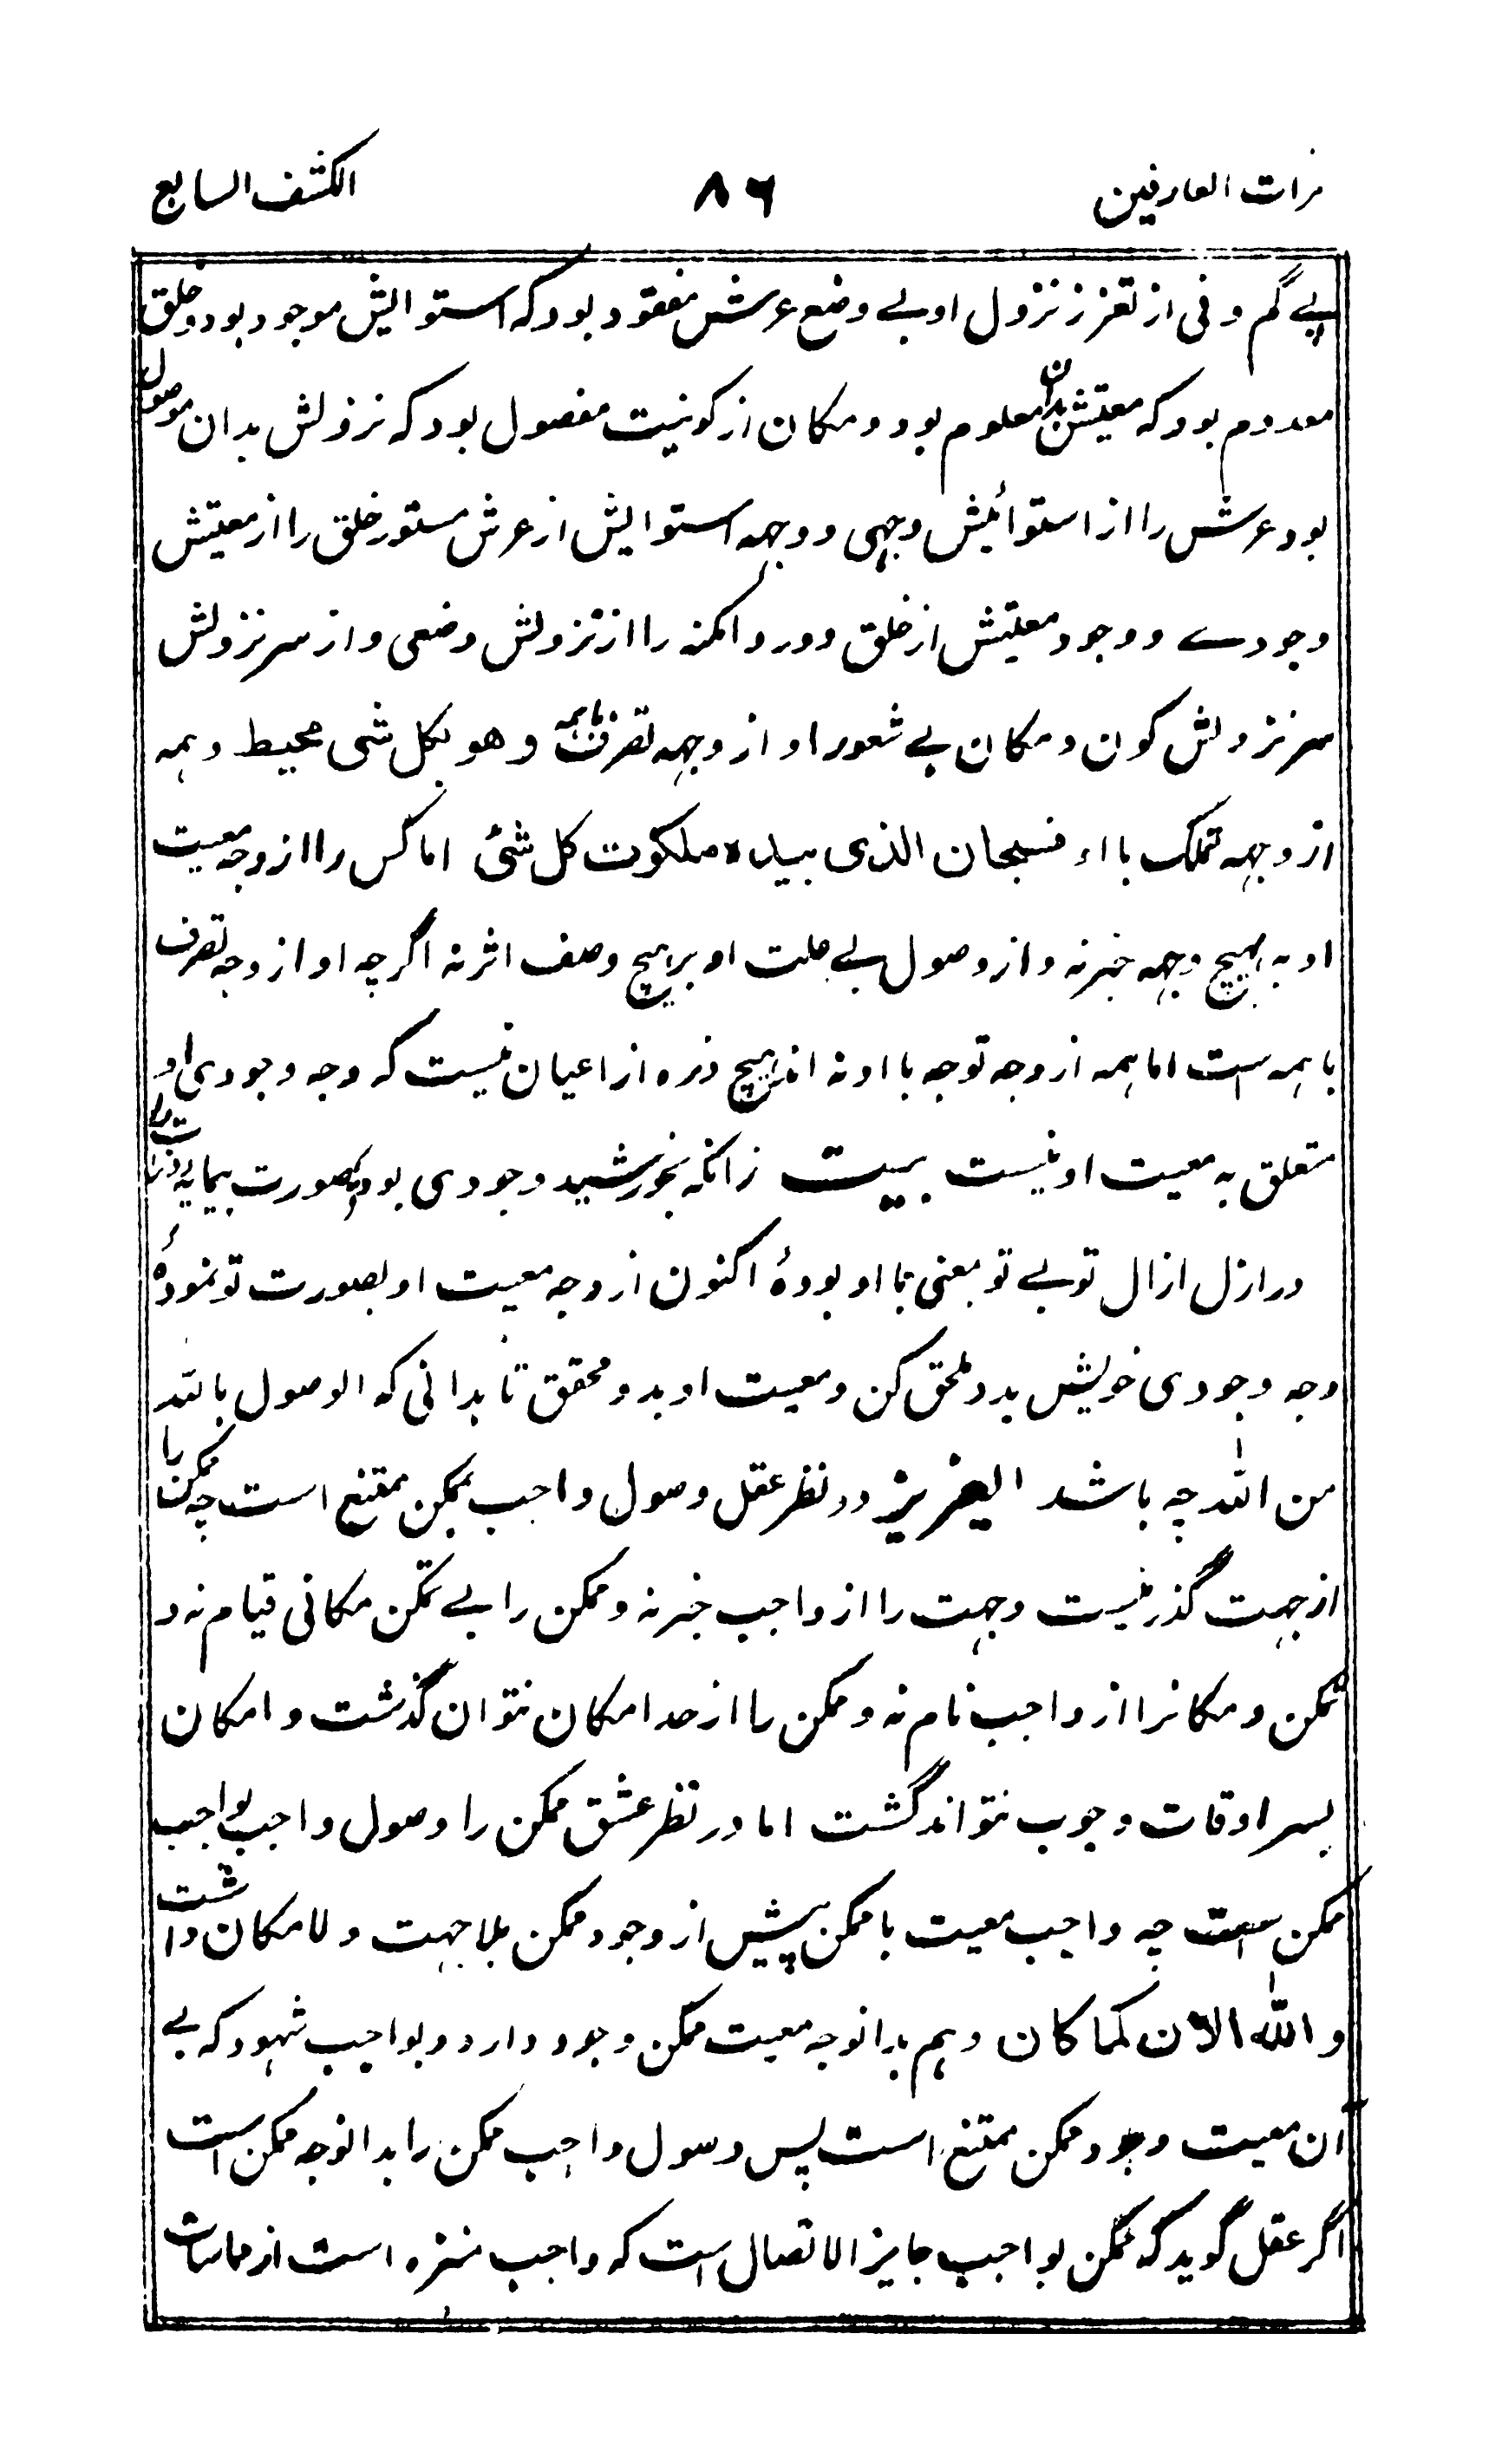 مرات العارفین ٨٦ الکشف السابع
پے گم و فی از تعزز نزول او بے وضع عرش مفقود بود که استوایش موجود بود و خلق
معدوم بود که معیتش بدان معلوم بود و مکان از کونیت مفصول بود که نزولش بدان موصول
بود عرش را از استوائیش وجهی و وجهه استوایش از عرش مستور خلق را از معیتش
وجودے و وجود معیتش از خلق دور و امکنه را از نزولش وضعی و از سر نزولش
سر نزولش کون و مکان بے شعور او از وجهه تصرف باهمه و هو بکل شی محیط و همه
از وجهه تملک با او فسبحان الذی بیده ملکوت کل شئ اما کس را از وجه معیت
او به هیچ وجهه خبر نه و از وصول بے جلت او بر هیچ وصف اثر نه اگرچه او از وجه تصرف
با همه است اما همه از وجه توجه با او نه اند هیچ ذره از اعیان نیست که وجه وجودی او
متعلق به معیت او نیست بیت زانکه بخورشید وجودی بود که بصورت بیمایه ذرات را
در ازل ازال تو بے تو بمعنی با او بودهٔ اکنون از وجه معیت او بصورت تو نمودهٔ
وجه وجودی خویش بدو ملحق کن و معیت او بدو محقق تا بدانی که الوصول بالله
من الله چه باشد العزیز در نظر عقل وصول واجب بممکن ممتنع است چه ممکن را
از جهت گذر نیست و جهت را از واجب خبر نه و ممکن را بے تمکن مکانی قیام نه و
تمکن و مکانرا از واجب نام نه و ممکن را از حد امکان نتوان گذشت و امکان
بسر اوقات وجوب نتواند گشت اما در نظر عشق ممکن را وصول واجب بواجب
ممکن است چه واجب معیت با ممکن پیش از وجود ممکن بلا جهت و لا مکان داشت
و الله الان کما کان و هم بدانوجه معیت ممکن وجود دارد و بواجب شهود که بے
آن معیت وجود ممکن ممتنع است پس وسول واجب ممکن را بدانوجه ممکن است
اگر عقل گوید که ممکن بواجب جایز الاتصال است که واجب منزه است از مماسات